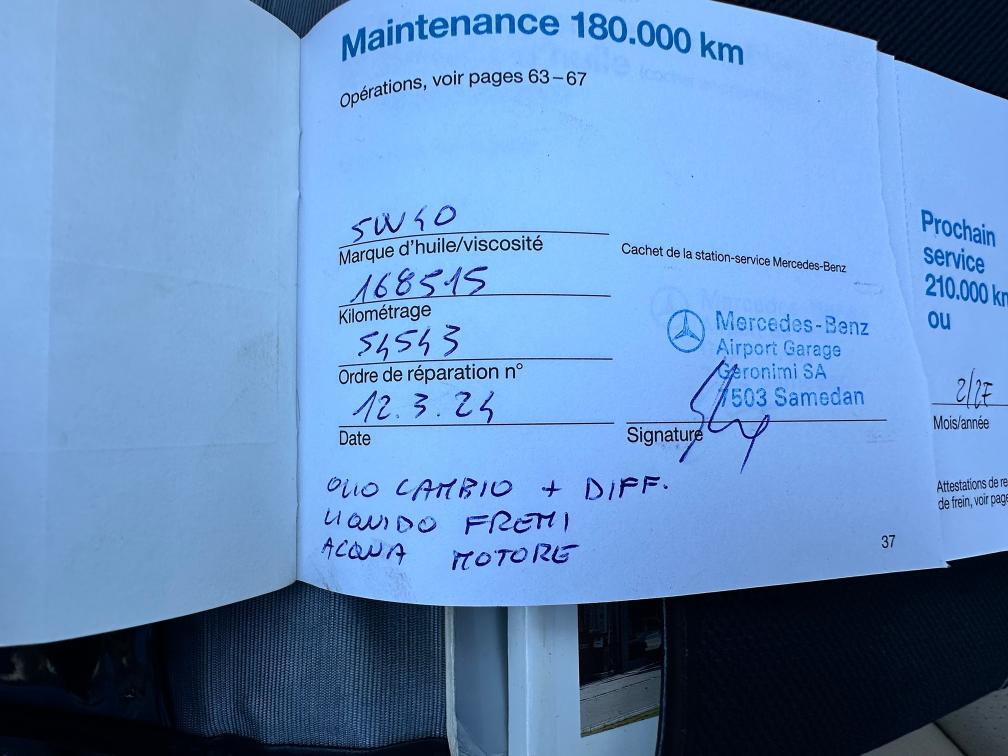 Maintenance 180.000 km
Opérations, voir pages 63–67
5W40
Marque d'huile/viscosité
168515
Kilométrage
54543
Ordre de réparation n°
12.3.24
Date
Cachet de la station-service Mercedes-Benz
Mercedes-Benz
Airport Garage
Geronimi SA
7503 Samedan
Signature
OLIO CAMBIO + DIFF.
LIQUIDO FRENI
ACQUA MOTORE
37
Prochain
service
210.000 km
ou
2/27
Mois/année
Attestations de
de frein, voir